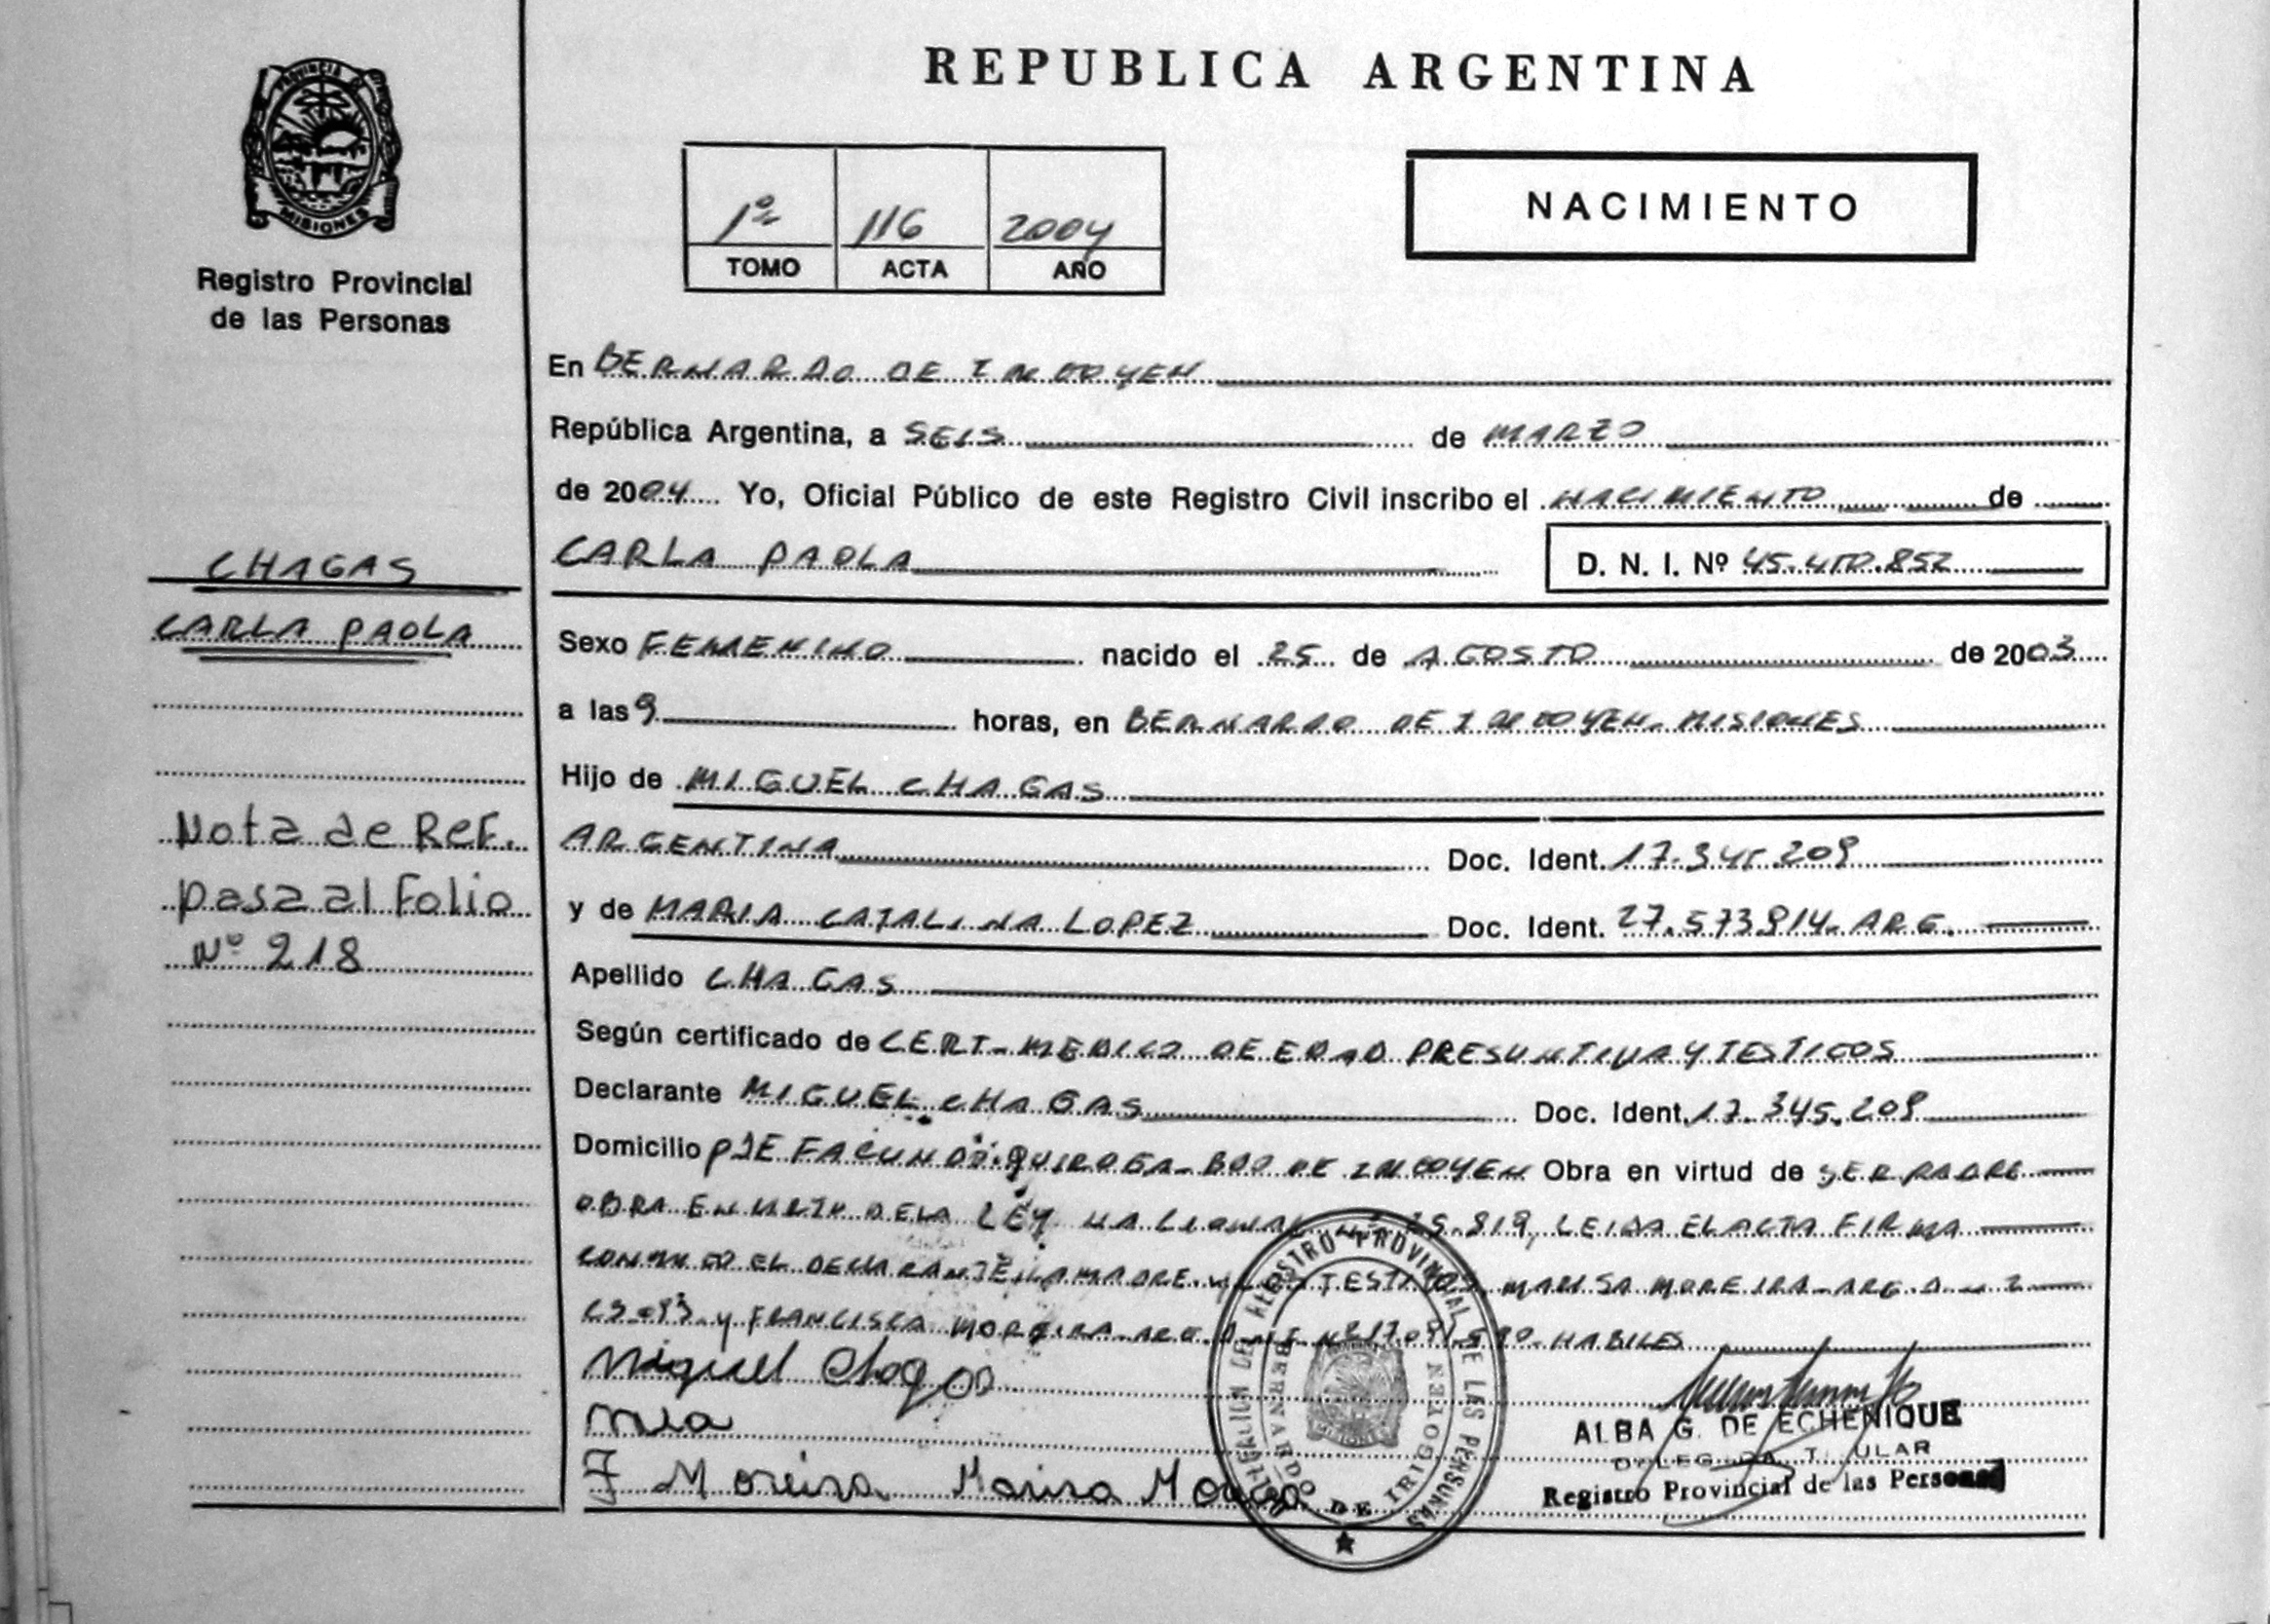 REPUBLICA ARGENTINA
PROVINCIA DE
MISIONES
Registro Provincial
de las Personas
1º 116 2004
TOMO ACTA AÑO
NACIMIENTO
En BERNARDO DE IRIGOYEN
República Argentina, a SEIS de MARZO
de 2004 Yo, Oficial Público de este Registro Civil inscribo el NACIMIENTO de
CHAGAS
CARLA PAOLA
CARLA PAOLA D. N. I. Nº 45.410.852
Sexo FEMENINO nacido el 25 de AGOSTO de 2003
a las 9 horas, en BERNARDO DE IRIGOYEN-MISIONES
Hijo de MIGUEL CHAGAS
Nota de Ref.
pasa al Folio
Nº 218
ARGENTINA Doc. Ident. 17.345.209
y de MARIA CATALINA LOPEZ Doc. Ident. 27.573.914-ARG.
Apellido CHAGAS
Según certificado de CERT-MEDICO DE EDAD PRESUNTIVA Y TESTIGOS
Declarante MIGUEL CHAGAS Doc. Ident. 17.345.209
Domicilio PJE FACUNDO QUIROGA-BDO DE IRIGOYEN Obra en virtud de SER PADRE
OBRA EN DE LA LEY NACIONAL Nº 25.819, LEIDA EL ACTA FIRMA
CONMIGO EL DECLARANTE, LA MADRE Y TESTIGOS, MARISA MOREIRA-ARG.
Y FRANCISCA MOREIRA-ARG HABILES
Miguel Chagas
F Moreira Marisa Moreira
REGISTRO PROVINCIAL DE LAS PERSONAS
BERNARDO DE IRIGOYEN
ALBA G. DE ECHENIQUE
Registro Provincial de las Personas